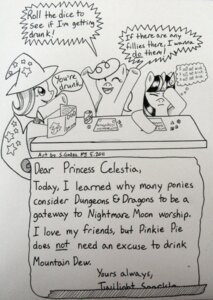 Roll the dice to
see if I'm getting
drunk!
If there are any
fillies there, I wanna
do them!
You're
drunk
Dear Princess Celestia,
Today, I learned why many ponies
consider Dungeons & Dragons to be a
gateway to Nightmare Moon worship.
I love my friends, but Pinkie Pie
does not need an excuse to drink
Mountain Dew.
Yours always,
Twilight Sparkle